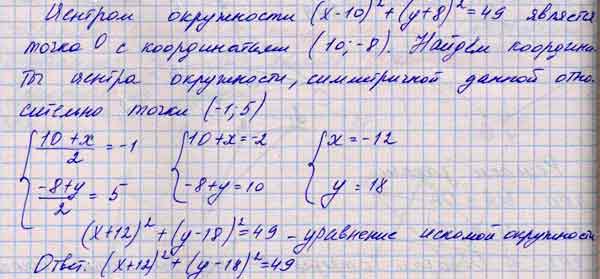 Центром окружности (x-10)²+(y+8)²=49 является
точка O с координатами (10;-8). Найдем координа-
ты центра окружности, симметричной данной отно-
сительно точки (-1;5)
{ (10+x)/2 = -1 { 10+x=-2 { x=-12
(-8+y)/2 = 5 -8+y=10 y=18
(x+12)²+(y-18)²=49 - уравнение искомой окружности
Ответ: (x+12)²+(y-18)²=49